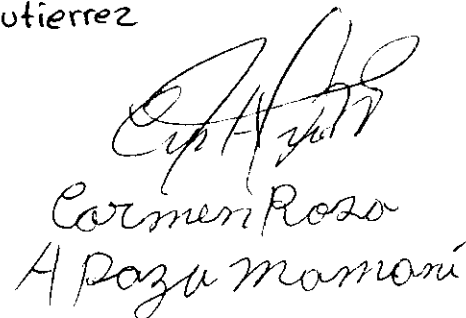 utierrez
Carmen Rosa
Apaza Mamani